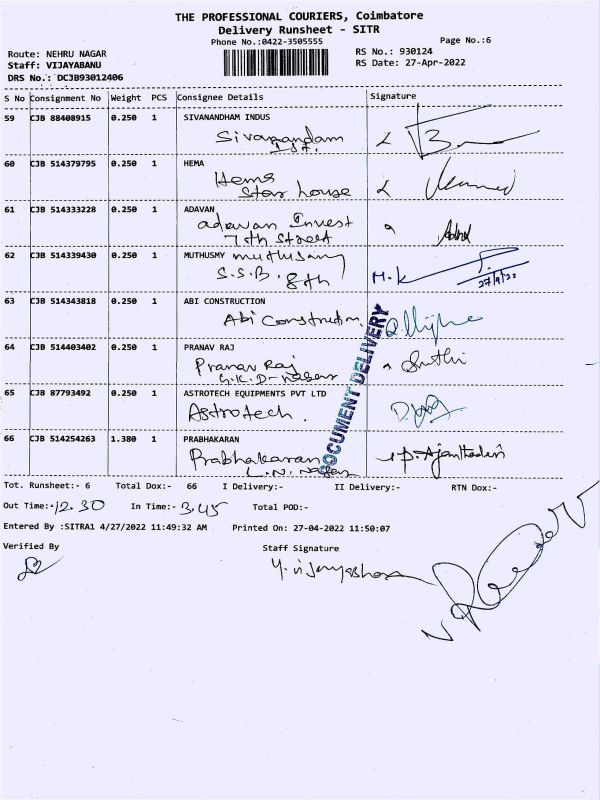 THE PROFESSIONAL COURIERS, Coimbatore
Delivery Runsheet - SITR
Phone No.:0422-3505555 Page No.:6
Route: NEHRU NAGAR RS No.: 930124
Staff: VIJAYABANU RS Date: 27-Apr-2022
DRS No.: DCJB93012406
S No Consignment No Weight PCS Consignee Details Signature
59 CJB 88408915 0.250 1 SIVANANDHAM INDUS
Sivanandam
60 CJB 514379795 0.250 1 HEMA
Hema
Star house
61 CJB 514333228 0.250 1 ADAVAN
adavan Invest
7th street
62 CJB 514339430 0.250 1 MUTHUSMY muthusamy
S.S.B. 8th M.K 27/4/22
63 CJB 514343818 0.250 1 ABI CONSTRUCTION
Abi Construction
64 CJB 514403402 0.250 1 PRANAV RAJ
Pranav Raj
G.K.D- Nagar
65 CJB 87793492 0.250 1 ASTROTECH EQUIPMENTS PVT LTD
Astrotech.
66 CJB 514254263 1.380 1 PRABHAKARAN
Prabhakaran
L.N. Nagar
DOCUMENT DELIVERY
Tot. Runsheet:- 6 Total Dox:- 66 I Delivery:- II Delivery:- RTN Dox:-
Out Time:- 12.30 In Time:- 3.45 Total POD:-
Entered By :SITRA1 4/27/2022 11:49:32 AM Printed On: 27-04-2022 11:50:07
Verified By Staff Signature